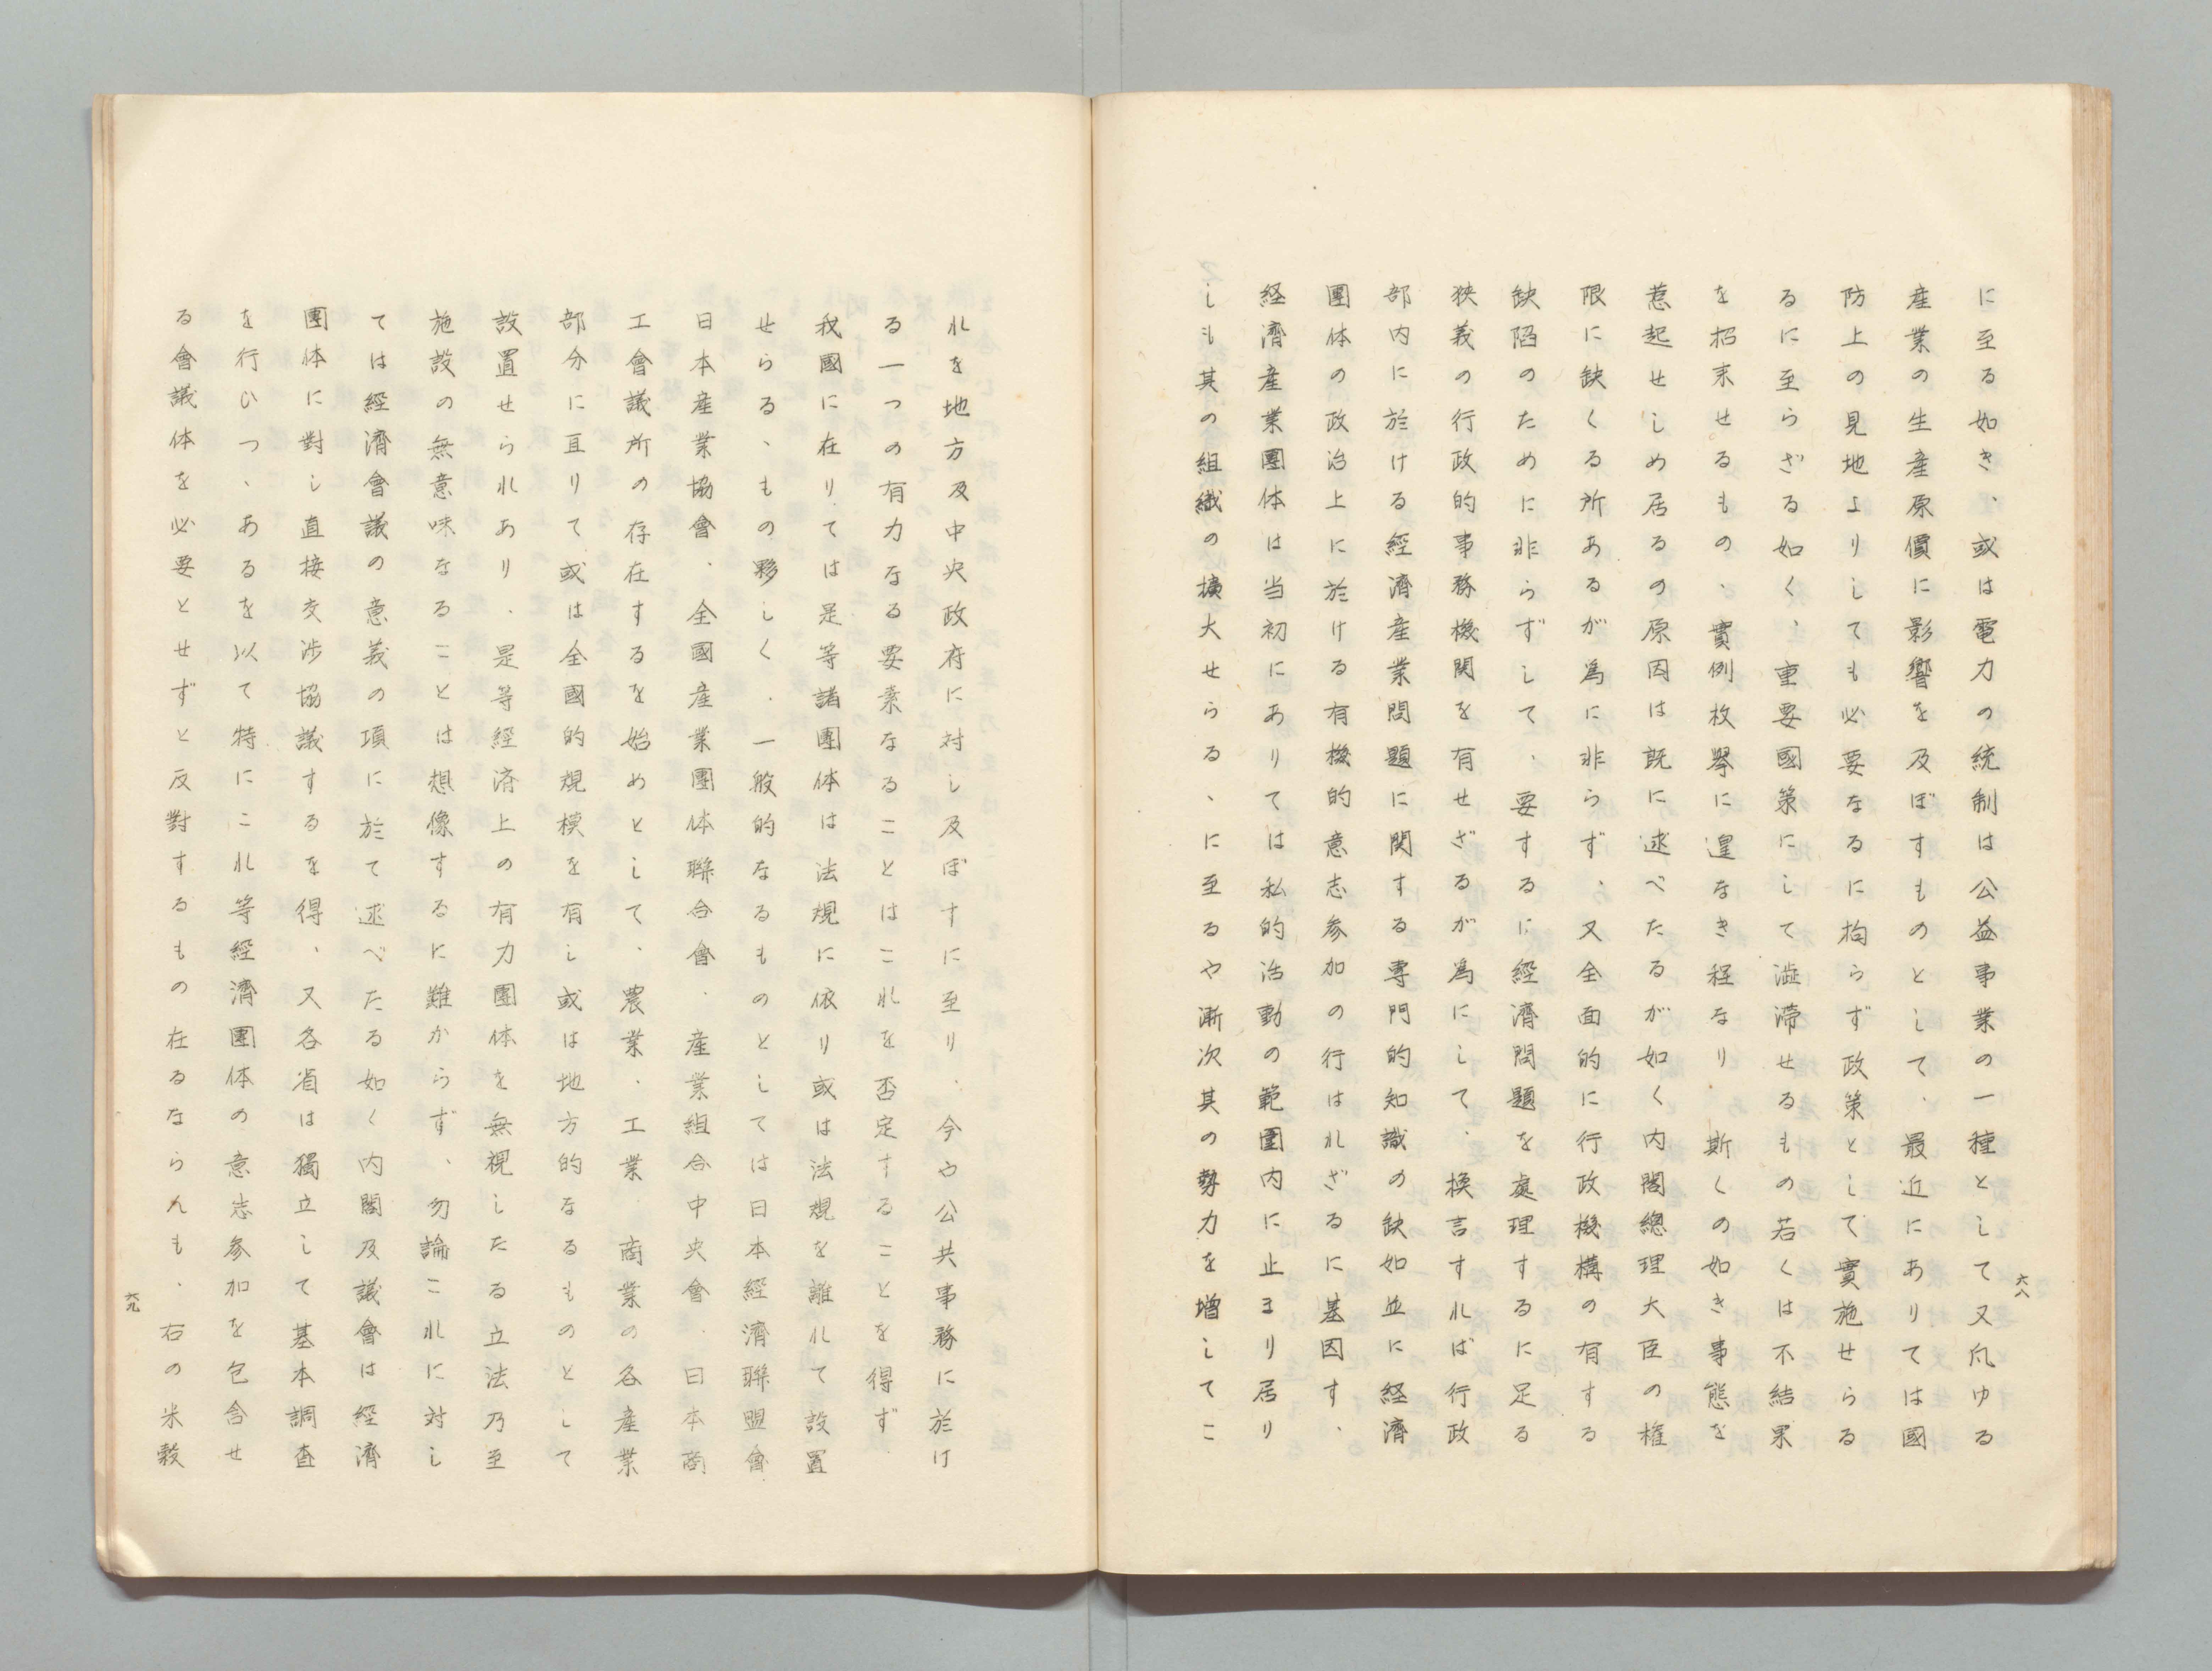 に至る如き、或は電力の統制は公益事業の一種として又凡ゆる
産業の生産原價に影響を及ぼすものとして、最近にありては國
防上の見地よりしても必要なるに拘らず政策として實施せらる
るに至らざる如く、重要國策にして澁滯せるもの若くは不結果
を招来せるもの、實例枚擧に遑なき程なり 斯くの如き事態を
惹起せしめ居るの原因は既に述べたるが如く内閣總理大臣の権
限に缺くる所あるが爲に非らず、又全面的に行政機構の有する
缺陷のために非らずして、要するに經濟問題を處理するに足る
狹義の行政的事務機関を有せざるが爲にして、換言すれば行政
部内に於ける經濟産業問題に関する專門的知識の缺如並に経濟
團体の政治上に於ける有機的意志参加の行はれざるに基因す、
経濟産業團体は当初にありては私的治動の範圍内に止まり居り
しも其の組織の擴大せらる、に至るや漸次其の勢力を増してこ
六八
れを地方及中央政府に対し及ぼすに至り、今や公共事務に於け
る一つの有力なる要素なることはこれを否定することを得ず、
我國に在りては是等諸團体は法規に依り或は法規を離れて設置
せらる、もの夥しく、一般的なるものとしては日本經濟聯盟會、
日本産業協會、全國産業團体聯合會、産業組合中央會、日本商
工會議所の存在するを始めとして、農業、工業、商業の各産業
部分に亘りて或は全國的規模を有し或は地方的なるものとして
設置せられあり、是等経済上の有力團体を無視したる立法乃至
施設の無意味なることは想像するに難からず、勿論これに対し
ては經濟會議の意義の項に於て述べたる如く内閣及議會は經濟
團体に對し直接交渉協議するを得、又各省は獨立して基本調査
を行ひつ、あるを以て特にこれ等經濟團体の意志参加を包含せ
る會議体を必要とせずと反對するもの在るならんも、右の米穀
六九